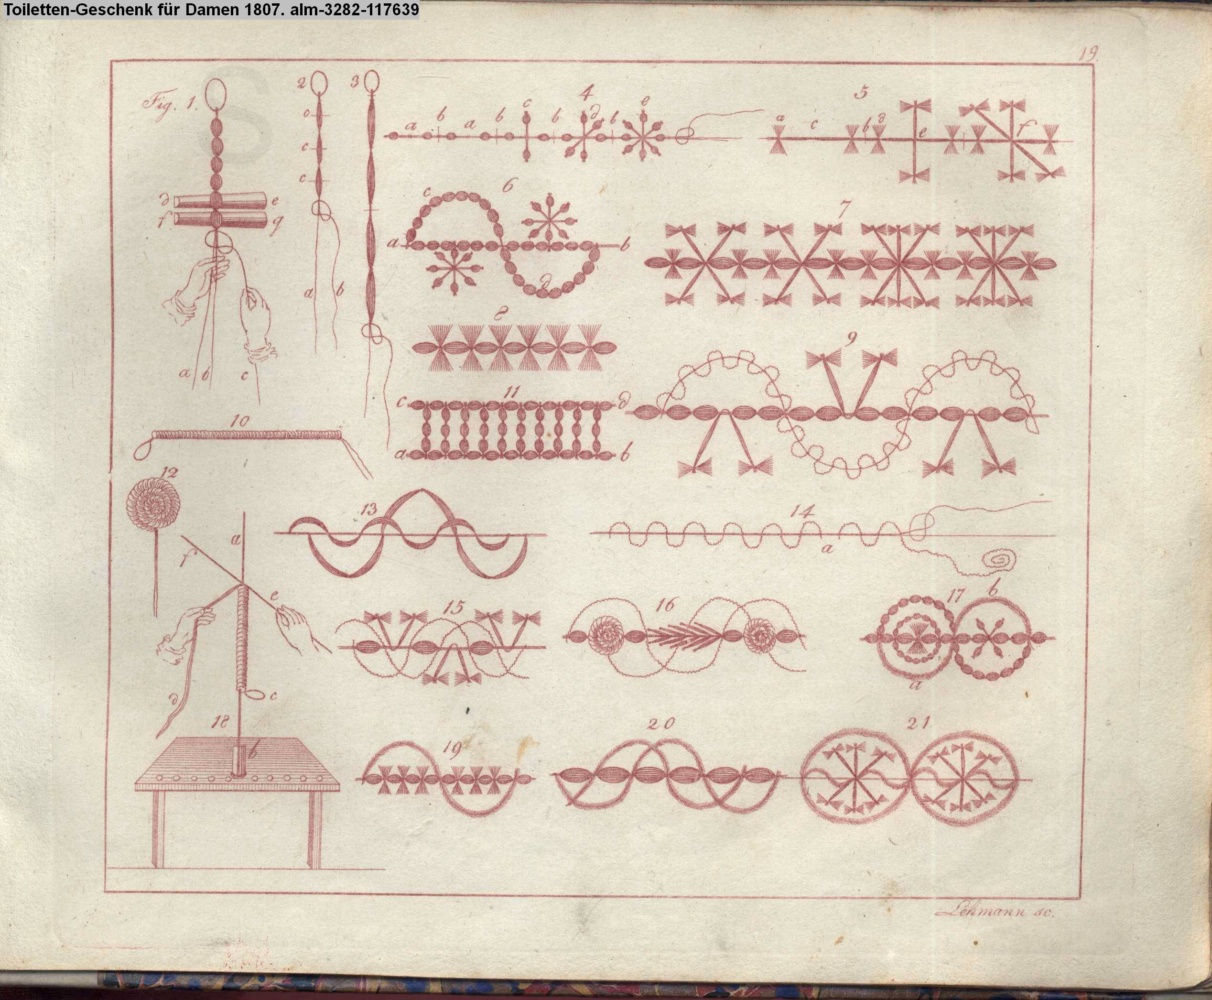 Toiletten-Geschenk für Damen 1807. alm-3282-117639
19.
Fig. 1.
d e
f g
a b c
2
c
c
c
a b
3
4
a b a b c b d b e
5
a c b d e f
6
c
a b
d
7
8
9
10
11
c d
a b
12
13
14
a
15
16
17 b
a
f a e
d c
18
b
19
20
21
Lehmann sc.